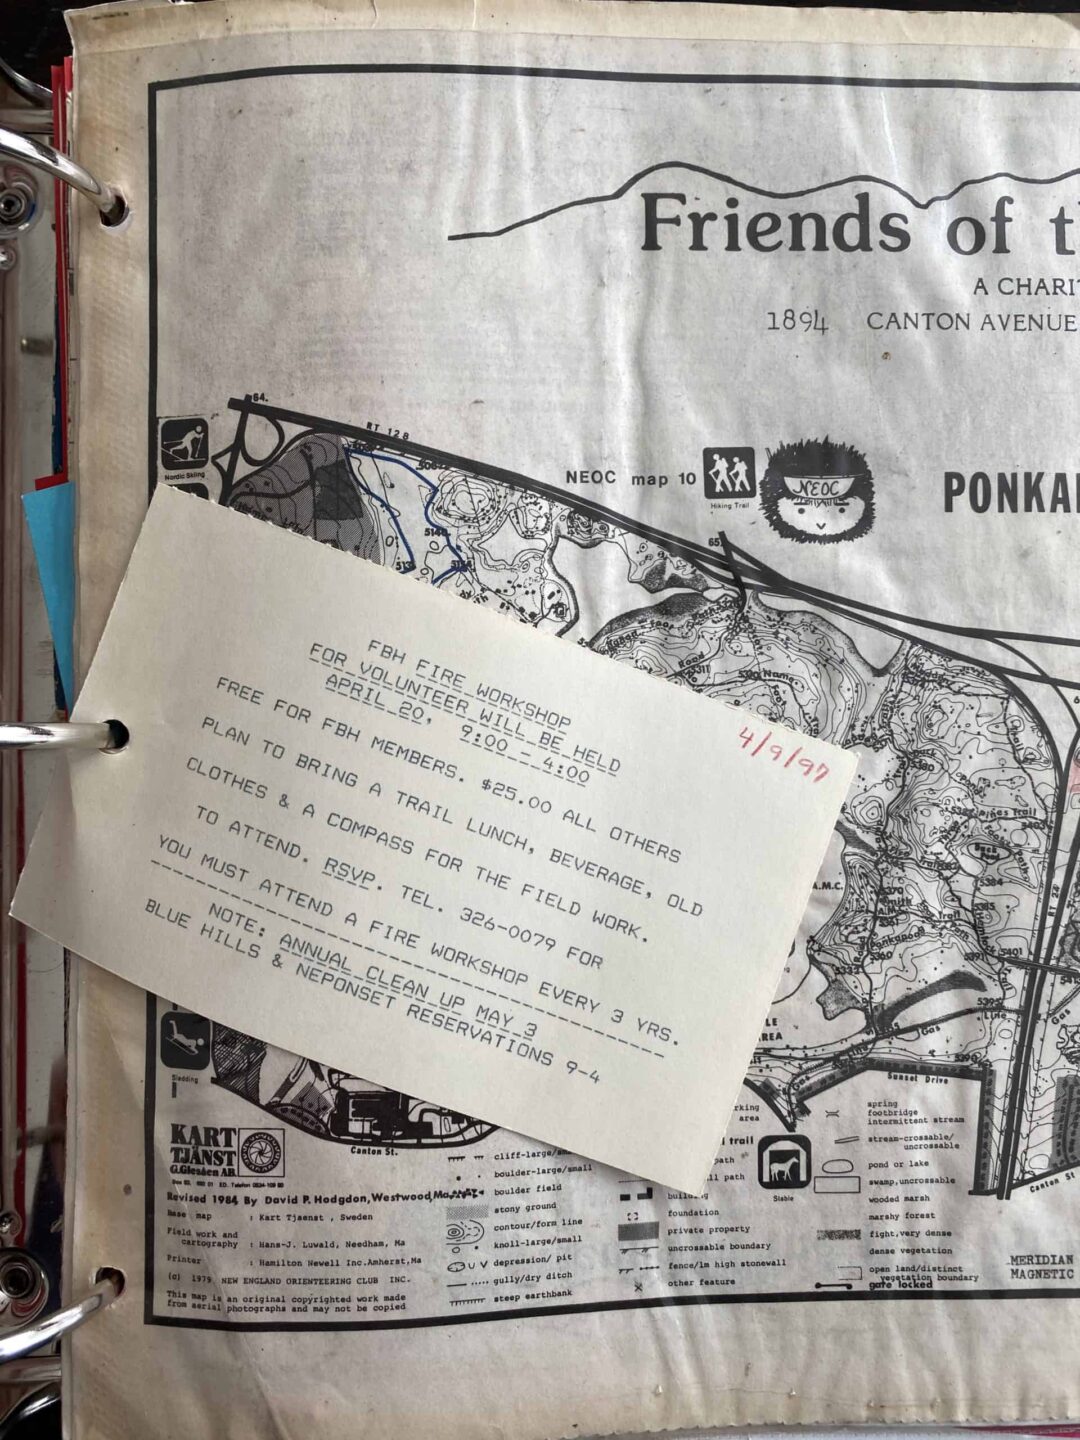 Friends of t
A CHARIT
1894 CANTON AVENUE
64.
RT 128
Nordic Skiing
NEOC map 10
Hiking Trail
NEOC
PONKA
65
5311
FBH FIRE WORKSHOP
FOR VOLUNTEER WILL BE HELD
APRIL 20, 9:00 - 4:00
FREE FOR FBH MEMBERS. $25.00 ALL OTHERS
PLAN TO BRING A TRAIL LUNCH, BEVERAGE, OLD
CLOTHES & A COMPASS FOR THE FIELD WORK.
TO ATTEND. RSVP. TEL. 326-0079 FOR
YOU MUST ATTEND A FIRE WORKSHOP EVERY 3 YRS.
NOTE: ANNUAL CLEAN UP MAY 3
BLUE HILLS & NEPONSET RESERVATIONS 9-4
4/9/97
5380
5384
5385
A.M.C.
5401
5360
5395
RT 24
Gas Line
Sunset Drive
Canton St.
Canton St
Sledding
KART
TJÄNST
G.Glesåen AB.
Revised 1984 By David P. Hodgdon, Westwood, Ma.
Base map : Kart Tjaenst , Sweden
Field work and
cartography : Hans-J. Luwald, Needham, Ma
Printer : Hamilton Newell Inc.Amherst, Ma
(c) 1979 NEW ENGLAND ORIENTEERING CLUB INC.
This map is an original copyrighted work made
from aerial photographs and may not be copied
cliff-large/sm
boulder-large/small
boulder field
stony ground
contour/form line
knoll-large/small
depression/ pit
gully/dry ditch
steep earthbank
rking
area
trail
path
path
building
foundation
private property
uncrossable boundary
fence/1m high stonewall
other feature
Stable
spring
footbridge
intermittent stream
stream-crossable/
uncrossable
pond or lake
swamp,uncrossable
wooded marsh
marshy forest
fight,very dense
dense vegetation
open land/distinct
vegetation boundary
gate locked
MERIDIAN
MAGNETIC